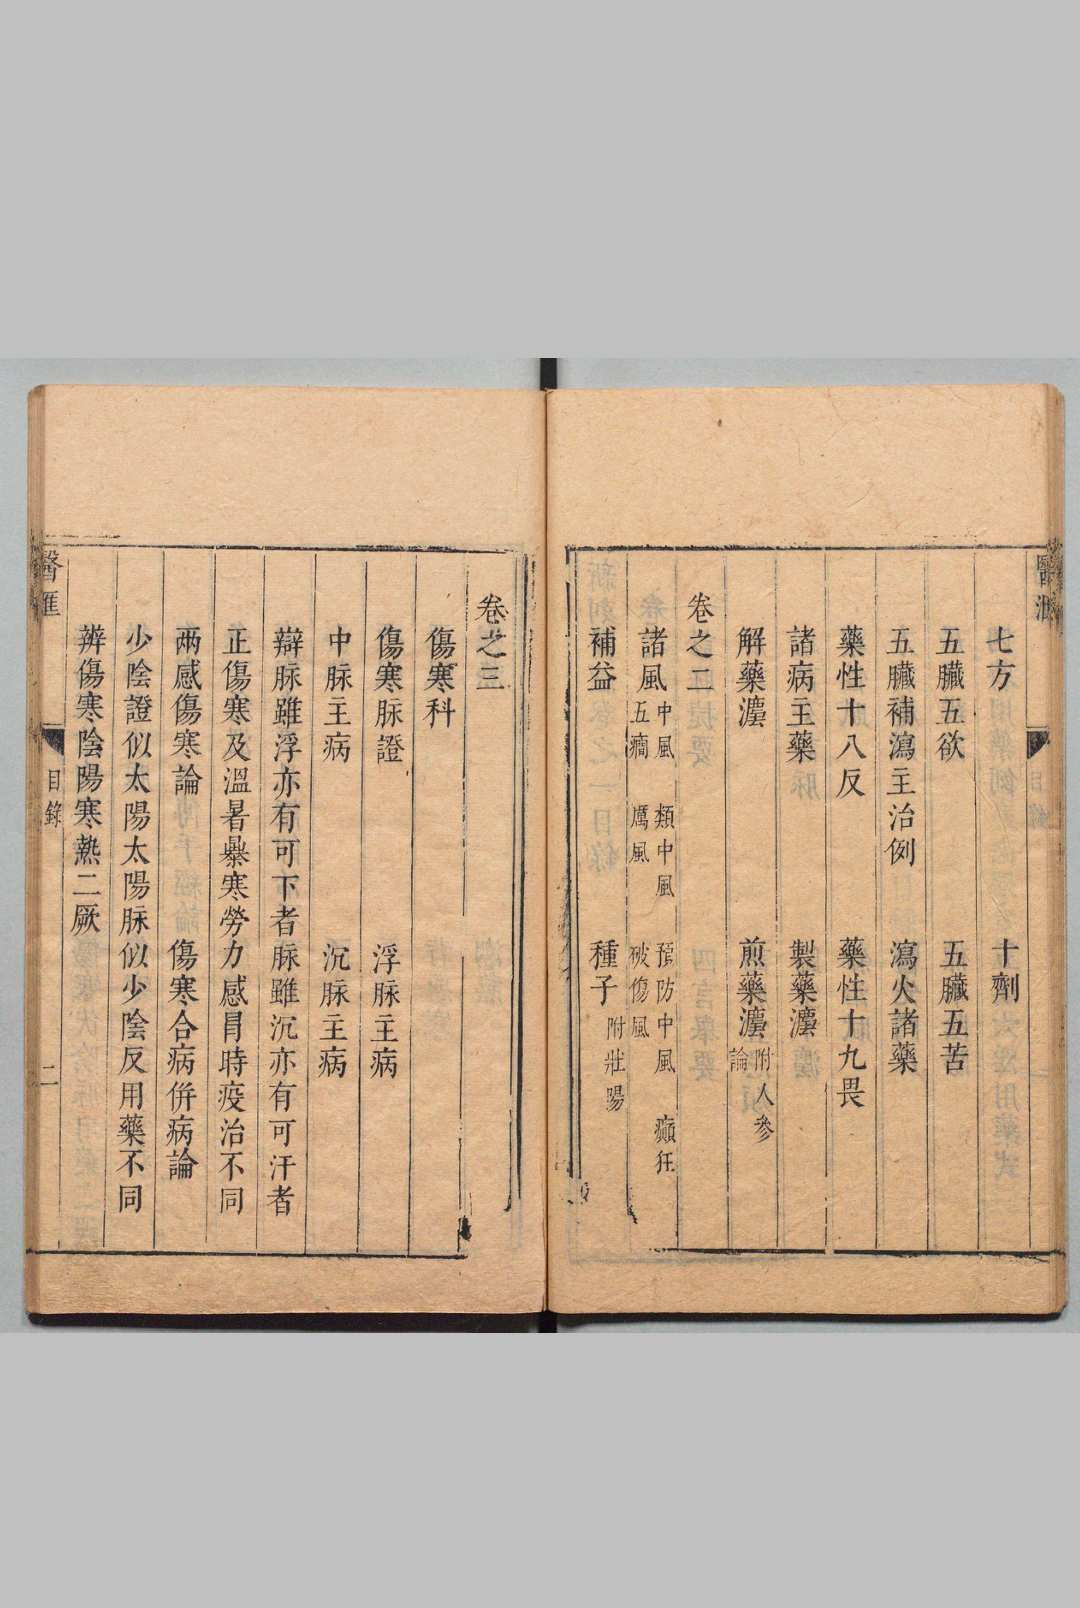 七方　十劑
五臟五欲　五臟五苦
五臟補瀉主治例　瀉火諸藥
藥性十八反　藥性十九畏
諸病主藥　製藥灋
解藥灋　煎藥灋 附人參論
卷之二
諸風 中風　類中風　預防中風　癲狂
五癇　厲風　破傷風
補益　種子 附壯陽
卷之三
傷寒科
傷寒脉證　浮脉主病
中脉主病　沉脉主病
辯脉雖浮亦有可下者脉雖沉亦有可汗者
正傷寒及溫暑暴寒勞力感冒時疫治不同
两感傷寒論　傷寒合病併病論
少陰證似太陽太陽脉似少陰反用藥不同
辨傷寒陰陽寒熱二厥
醫匯　目錄　二